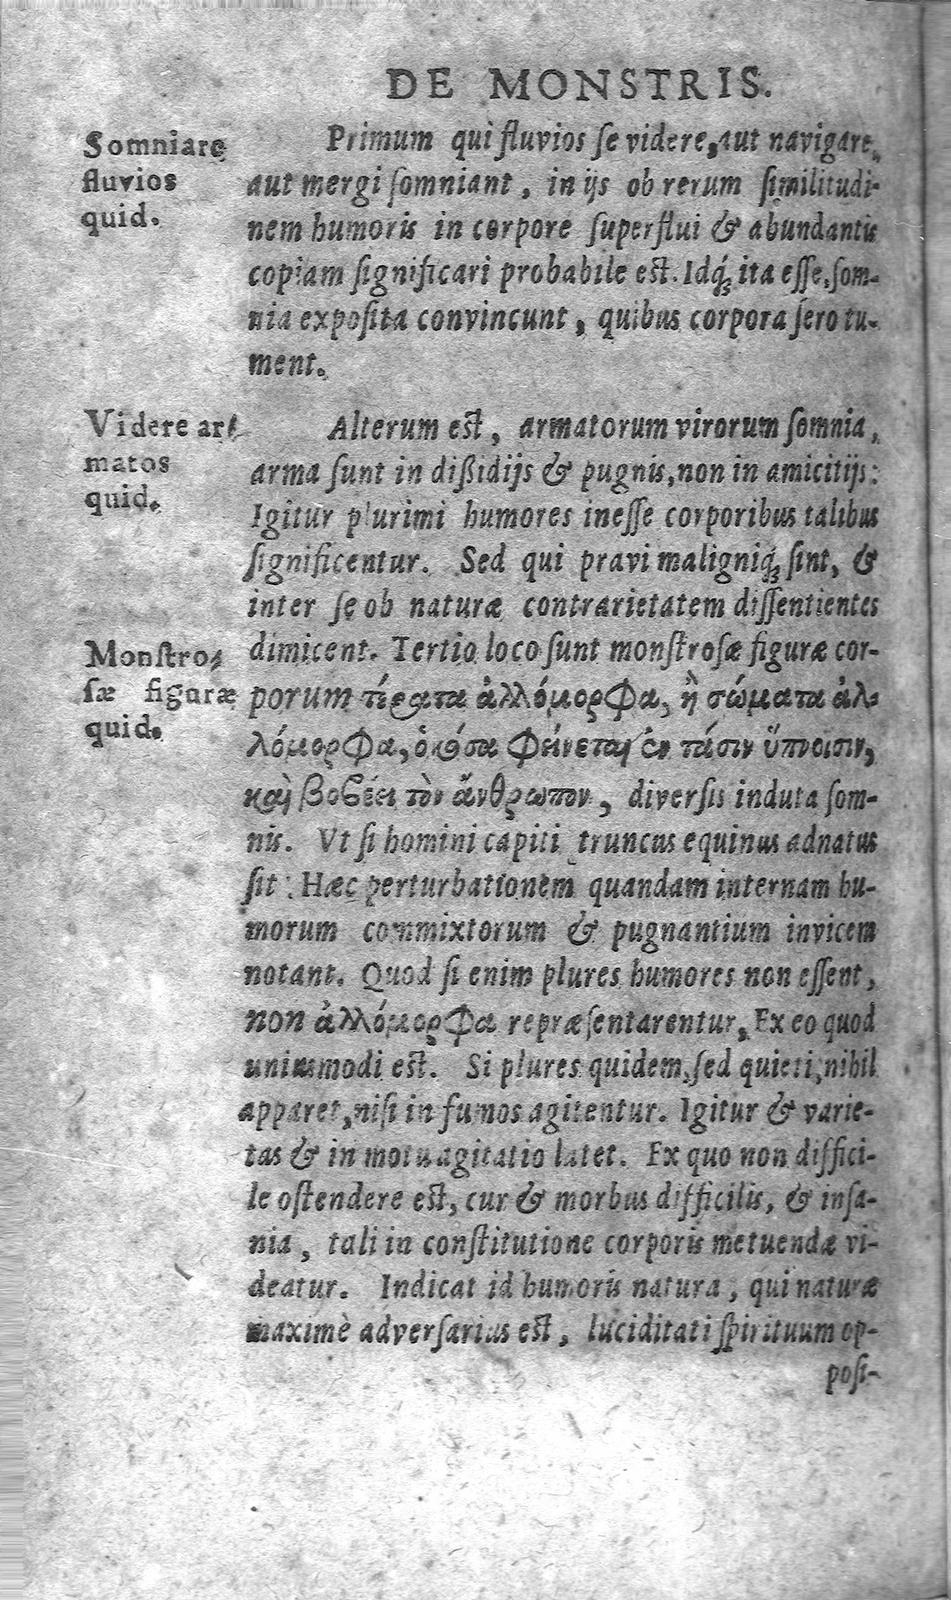 DE MONSTRIS.
Somniare
fluvios
quid.
Primum qui fluvios ſe videre, aut navigare,
aut mergi ſomniant, in ijs ob rerum ſimilitudi-
nem humoris in corpore ſuperflui & abundantis
copiam ſignificari probabile eſt. Idq́; ita eſſe, ſom-
nia expoſita convincunt, quibus corpora ſero tu-
ment.
Videre ar-
matos
quid.
Alterum eſt, armatorum virorum ſomnia,
arma ſunt in diſſidijs & pugnis, non in amicitijs:
Igitur plurimi humores ineſſe corporibus talibus
ſignificentur. Sed qui pravi maligniq́; ſint, &
inter ſe ob naturæ contrarietatem diſſentientes
Monſtro-
ſæ figuræ
quid.
dimicent. Tertio loco ſunt monſtroſæ figuræ cor-
porum τέρατα ἀλλόμορφα, ἢ σώματα ἀλ-
λόμορφα, ὁκόσα φαίνεται ἐν πᾶσιν ὕπνοισιν,
καὶ φοβέει τὸν ἄνθρωπον, diverſis induta ſom-
nis. Vt ſi homini capiti truncus equinus adnatus
ſit: Hæc perturbationem quandam internam hu-
morum commixtorum & pugnantium invicem
notant. Quod ſi enim plures humores non eſſent,
non ἀλλόμορφα repræſentarentur, Ex eo quod
uniusmodi eſt. Si plures quidem, ſed quieti, nihil
apparet, niſi in fumos agitentur. Igitur & varie-
tas & in motu agitatio latet. Ex quo non diffici-
le oſtendere eſt, cur & morbus difficilis, & inſa-
nia, tali in conſtitutione corporis metuendæ vi-
deatur. Indicat id humoris natura, qui naturæ
maximè adverſarius eſt, luciditati ſpirituum op-
poſi-